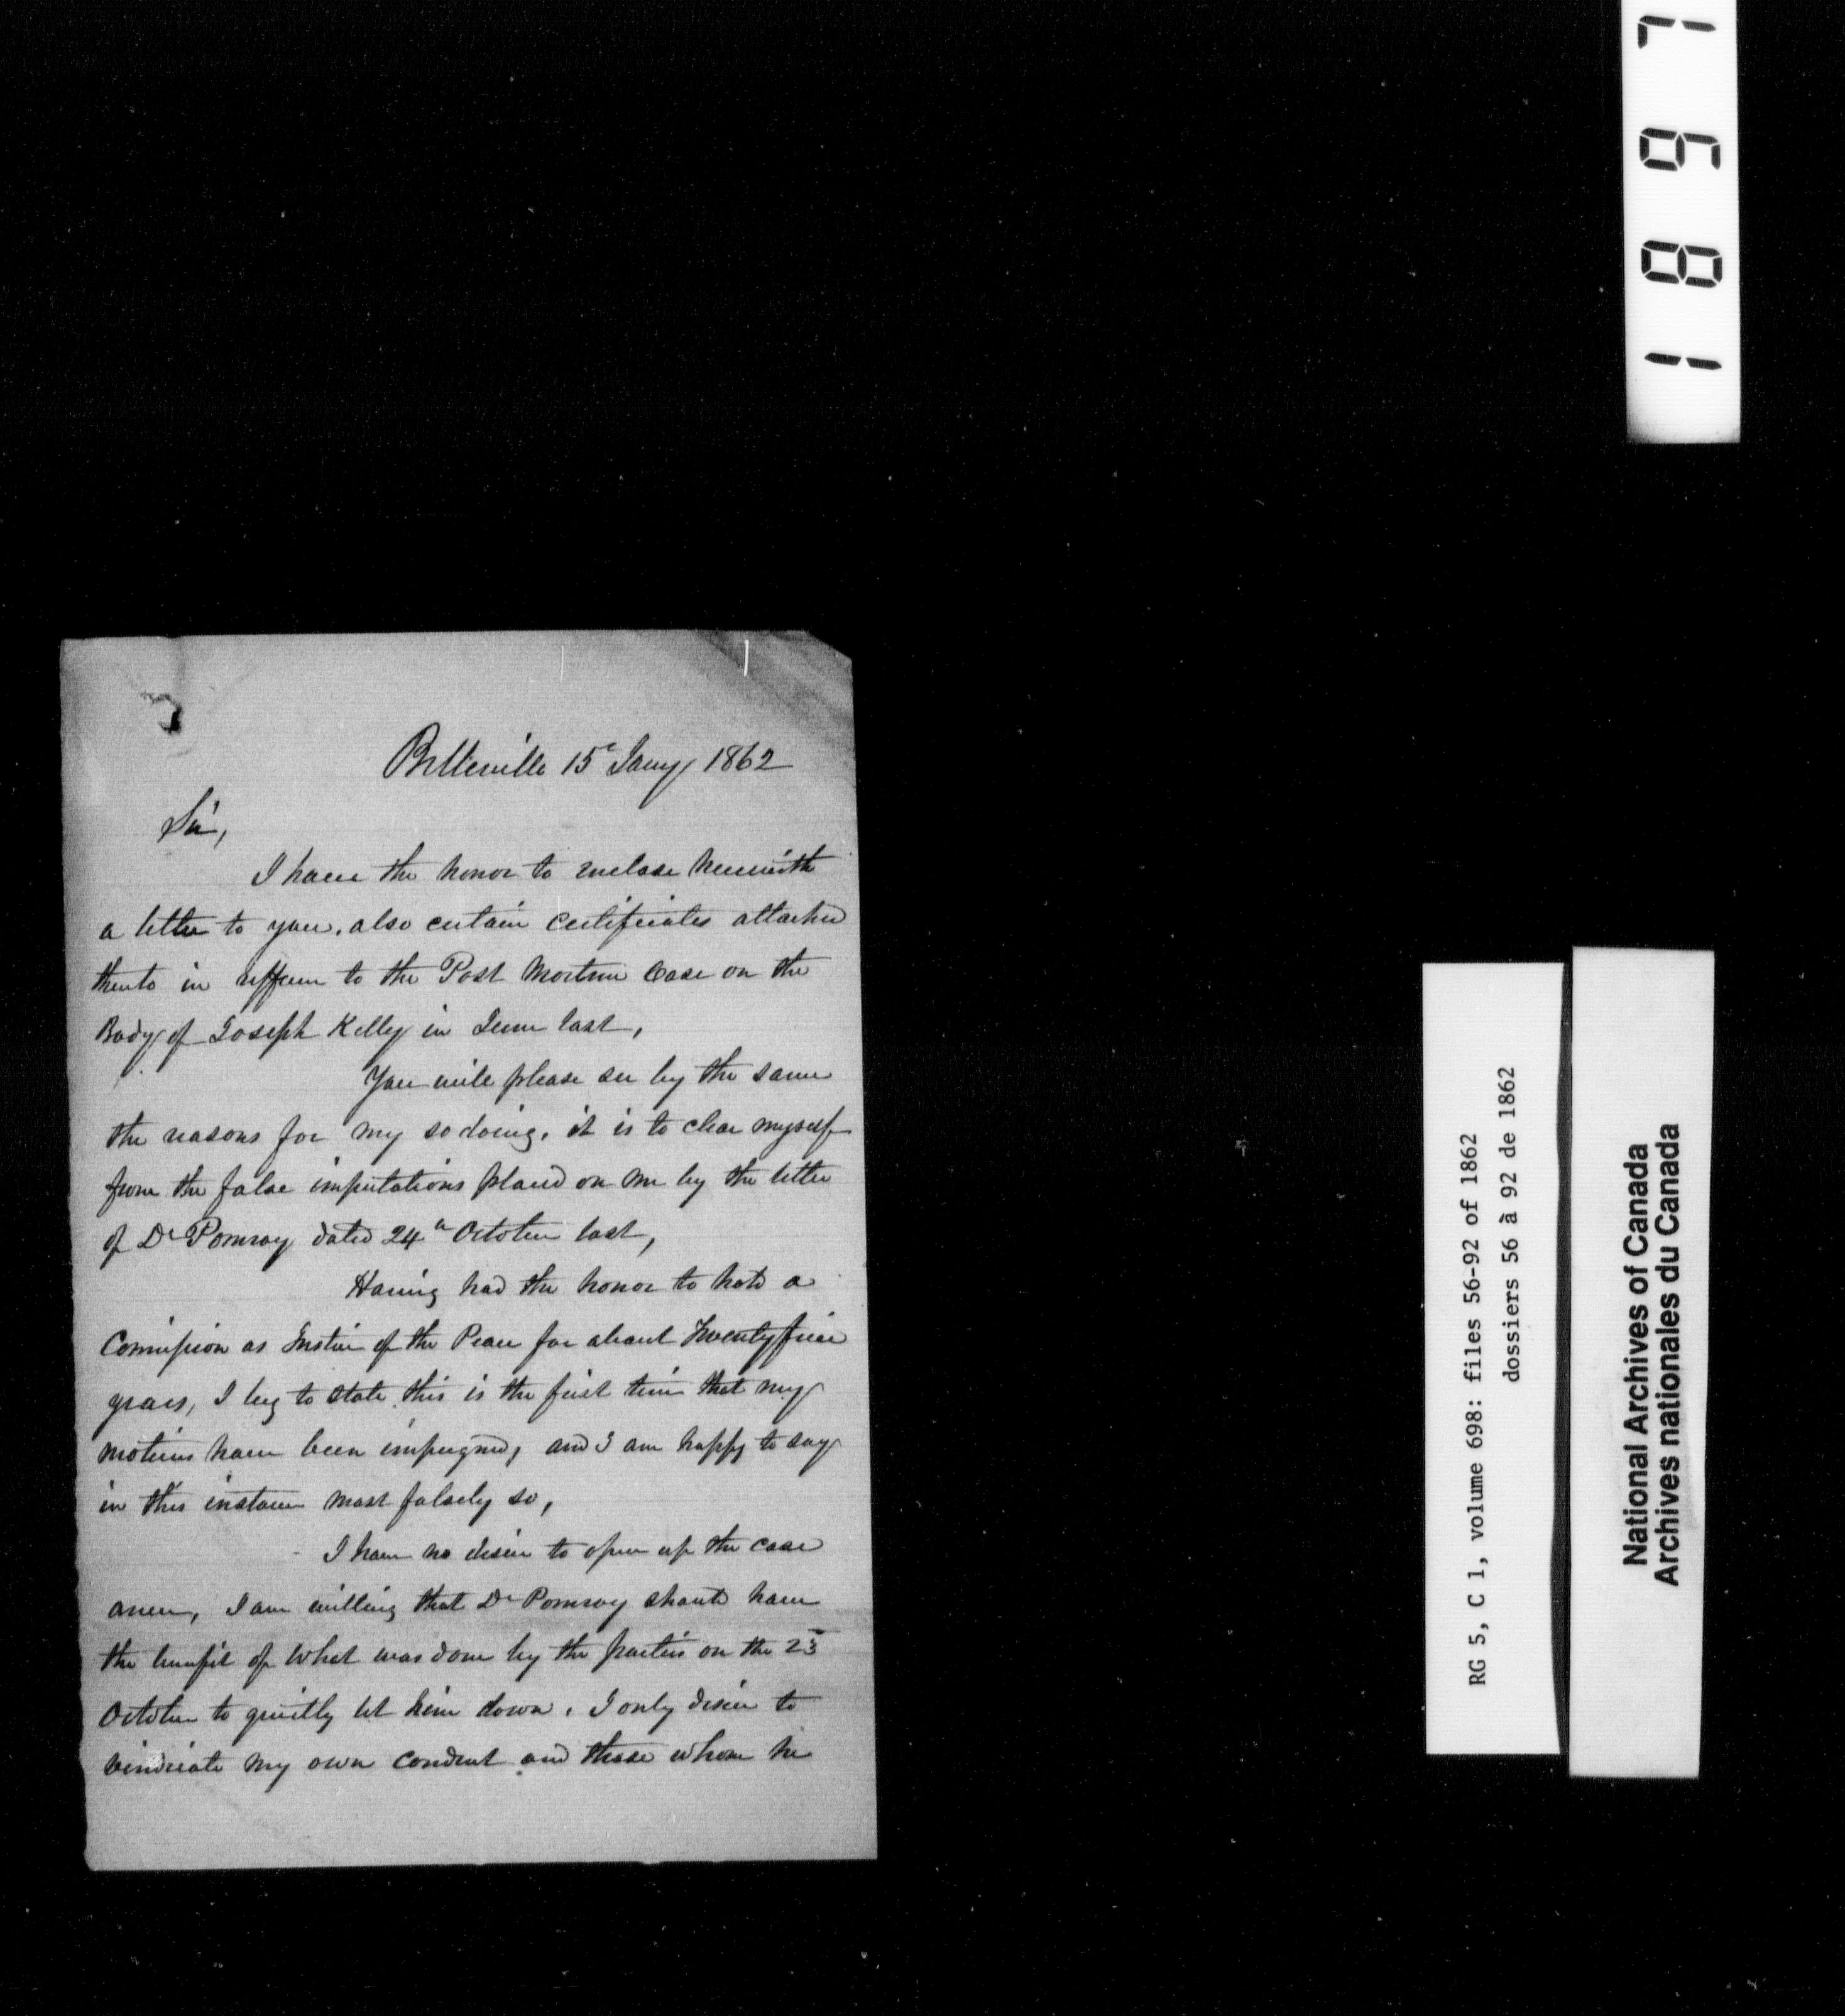 Belleville 15th Jany 1862
Sir,
I have the honor to enclose herewith
a letter to you, also certain certificates attached
thereto in refference to the Post Mortem Case on the
Body of Joseph Kelly in June last,
You will please see by the same
the reasons for my so doing, it is to clear myself
from the false imputations placed on me by the letter
of Dr Pomroy dated 24th October last,
Having had the honor to hold a
Commission as Justice of the Peace for about Twenty five
years, I beg to state this is the first time that my
motives have been impugned, and I am happy to say
in this instance most falsely so,
I have no desire to open up the case
anew, I am willing that Dr Pomroy should have
the benefit of what was done by the parties on the 23
October to quietly let him down, I only desire to
vindicate my own conduct and those whom he
1897
RG 5, C 1, volume 698: files 56-92 of 1862
dossiers 56 à 92 de 1862
National Archives of Canada
Archives nationales du Canada